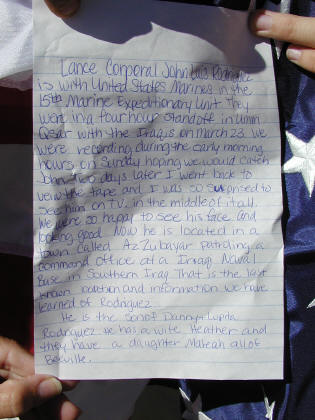 Lance Corporal John Luis Rodriguez
is with United States Marines in the
15th Marine Expeditionary Unit They
were in a four hour standoff in Umm
Qsar with the Iraqis on March 23. We
were recording during the early morning
hours on Sunday hoping we would catch
John. Two days later I went back to
view the tape and I was so surprised to
see him on T.V. in the middle of it all.
We were so happy to see his face and
looking good. Now he is located in a
town called Az Zubayar patroling a
command office at a Iraqi Naval
Base in Southern Iraq That is the last
known location and information we have
learned of Rodriquez
He is the son of Danny + Lupita
Rodriquez. He has a wife Heather and
they have a daughter all of
Beeville.